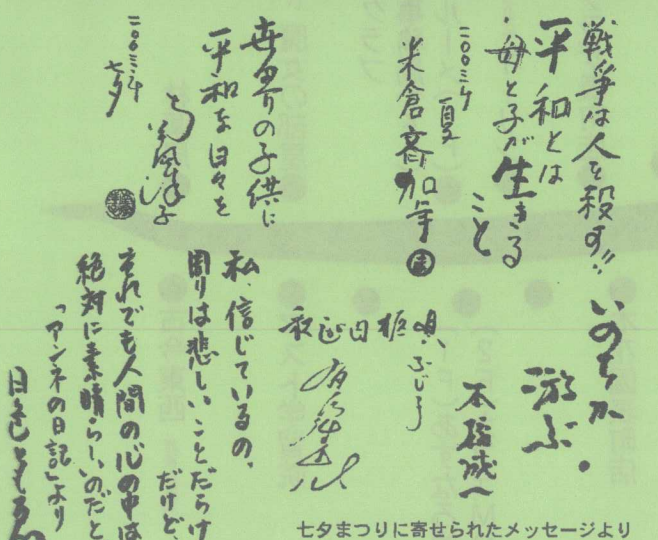 戦争は人を殺す!!
平和とは
・母と子が生きる
こと
二〇〇三年
夏
米倉斉加年
世界の子供に
平和な日々を
二〇〇三年
七夕
いのちが
游ぶ。
不戦
私、信じているの、
周りは悲しいことだらけ
だけど、
それでも人間の心の中は
絶対に素晴らしいのだと
「アンネの日記」より
日色ともゑ
七夕まつりに寄せられたメッセージより